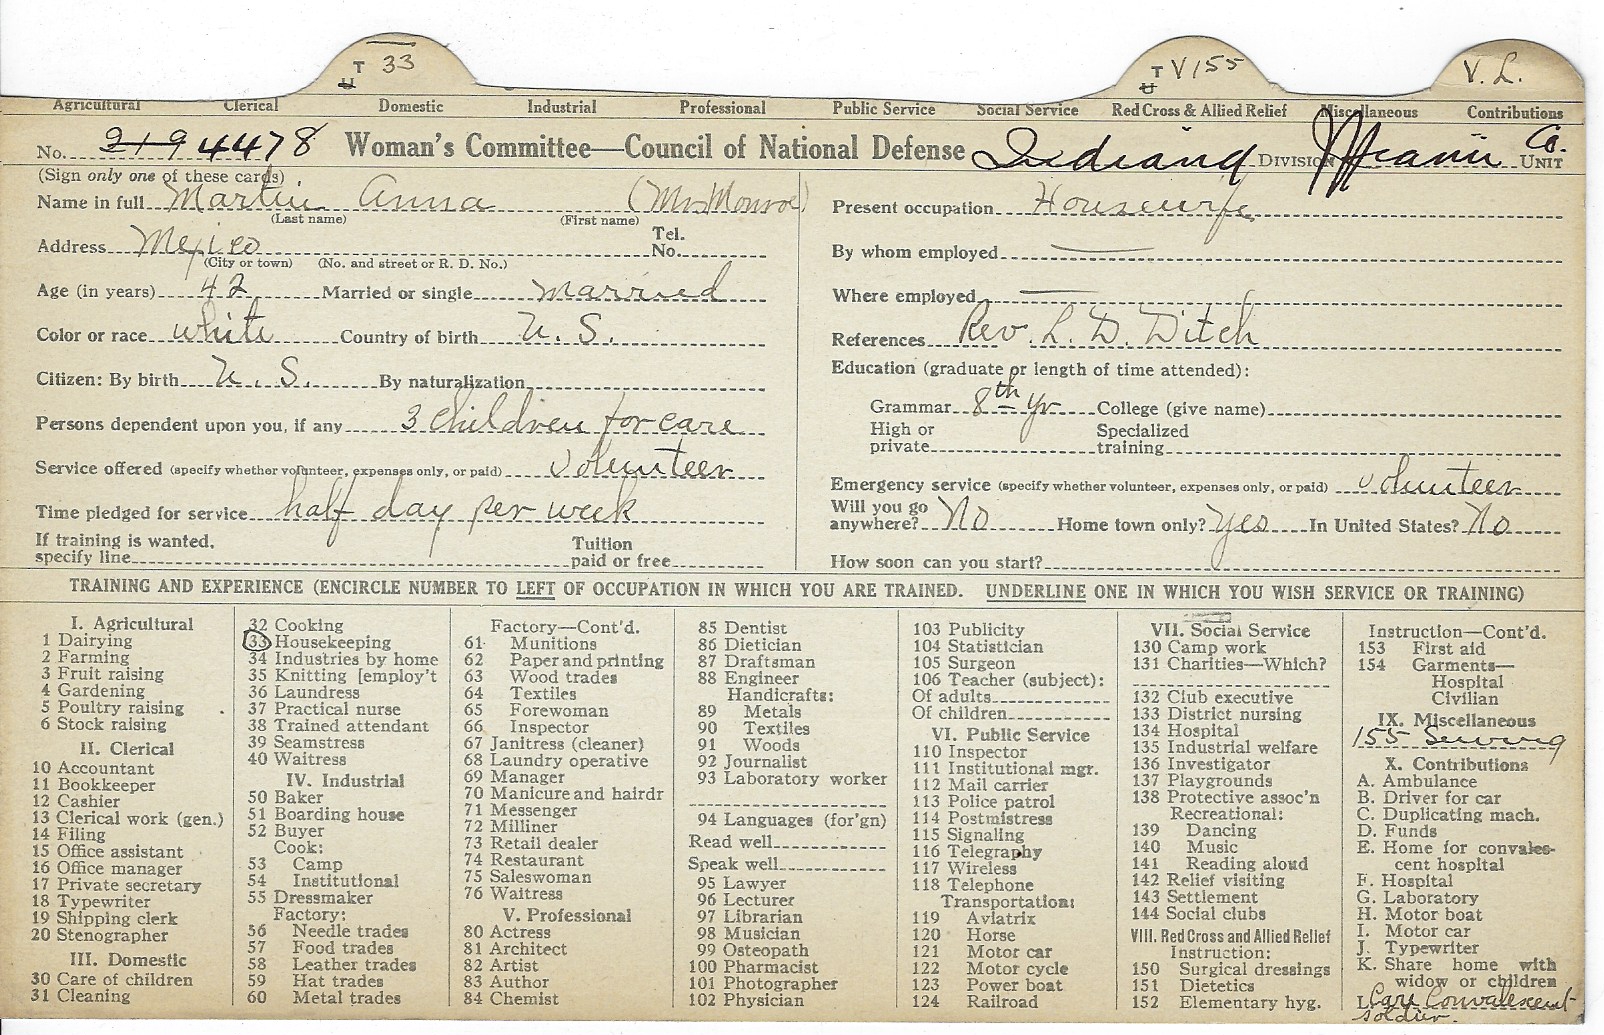 T 33
U
T V155
U
V. L.
Agricultural Clerical Domestic Industrial Professional Public Service Social Service Red Cross & Allied Relief Miscellaneous Contributions
No. 219 4478 Woman's Committee—Council of National Defense Indiana DIVISION Miami Co. UNIT
(Sign only one of these cards)
Name in full Martin Anna (Mrs Monroe)
(Last name) (First name)
Address Mexico Tel. No.
(City or town) (No. and street or R. D. No.)
Age (in years) 42 Married or single Married
Color or race white Country of birth U. S.
Citizen: By birth U. S. By naturalization
Persons dependent upon you, if any 3 children for care
Service offered (specify whether volunteer, expenses only, or paid) volunteer
Time pledged for service half day per week
If training is wanted, specify line Tuition paid or free
Present occupation Housewife
By whom employed
Where employed
References Rev. L. D. Ditch
Education (graduate or length of time attended):
Grammar 8th yr College (give name)
High or private Specialized training
Emergency service (specify whether volunteer, expenses only, or paid) volunteer
Will you go anywhere? No Home town only? Yes In United States? No
How soon can you start?
TRAINING AND EXPERIENCE (ENCIRCLE NUMBER TO LEFT OF OCCUPATION IN WHICH YOU ARE TRAINED. UNDERLINE ONE IN WHICH YOU WISH SERVICE OR TRAINING)
I. Agricultural
1 Dairying
2 Farming
3 Fruit raising
4 Gardening
5 Poultry raising
6 Stock raising
II. Clerical
10 Accountant
11 Bookkeeper
12 Cashier
13 Clerical work (gen.)
14 Filing
15 Office assistant
16 Office manager
17 Private secretary
18 Typewriter
19 Shipping clerk
20 Stenographer
III. Domestic
30 Care of children
31 Cleaning
32 Cooking
33 Housekeeping
34 Industries by home
35 Knitting [employ't
36 Laundress
37 Practical nurse
38 Trained attendant
39 Seamstress
40 Waitress
IV. Industrial
50 Baker
51 Boarding house
52 Buyer
Cook:
53 Camp
54 Institutional
55 Dressmaker
Factory:
56 Needle trades
57 Food trades
58 Leather trades
59 Hat trades
60 Metal trades
Factory—Cont'd.
61 Munitions
62 Paper and printing
63 Wood trades
64 Textiles
65 Forewoman
66 Inspector
67 Janitress (cleaner)
68 Laundry operative
69 Manager
70 Manicure and hairdr
71 Messenger
72 Milliner
73 Retail dealer
74 Restaurant
75 Saleswoman
76 Waitress
V. Professional
80 Actress
81 Architect
82 Artist
83 Author
84 Chemist
85 Dentist
86 Dietician
87 Draftsman
88 Engineer
Handicrafts:
89 Metals
90 Textiles
91 Woods
92 Journalist
93 Laboratory worker
94 Languages (for'gn)
Read well
Speak well
95 Lawyer
96 Lecturer
97 Librarian
98 Musician
99 Osteopath
100 Pharmacist
101 Photographer
102 Physician
103 Publicity
104 Statistician
105 Surgeon
106 Teacher (subject):
Of adults
Of children
VI. Public Service
110 Inspector
111 Institutional mgr.
112 Mail carrier
113 Police patrol
114 Postmistress
115 Signaling
116 Telegraphy
117 Wireless
118 Telephone
Transportation:
119 Aviatrix
120 Horse
121 Motor car
122 Motor cycle
123 Power boat
124 Railroad
VII. Social Service
130 Camp work
131 Charities—Which?
132 Club executive
133 District nursing
134 Hospital
135 Industrial welfare
136 Investigator
137 Playgrounds
138 Protective assoc'n
Recreational:
139 Dancing
140 Music
141 Reading aloud
142 Relief visiting
143 Settlement
144 Social clubs
VIII. Red Cross and Allied Relief
Instruction:
150 Surgical dressings
151 Dietetics
152 Elementary hyg.
Instruction—Cont'd.
153 First aid
154 Garments—
Hospital
Civilian
IX. Miscellaneous
155 Sewing
X. Contributions
A. Ambulance
B. Driver for car
C. Duplicating mach.
D. Funds
E. Home for convales-
cent hospital
F. Hospital
G. Laboratory
H. Motor boat
I. Motor car
J. Typewriter
K. Share home with
widow or children
L. Care Convalescent
soldier.